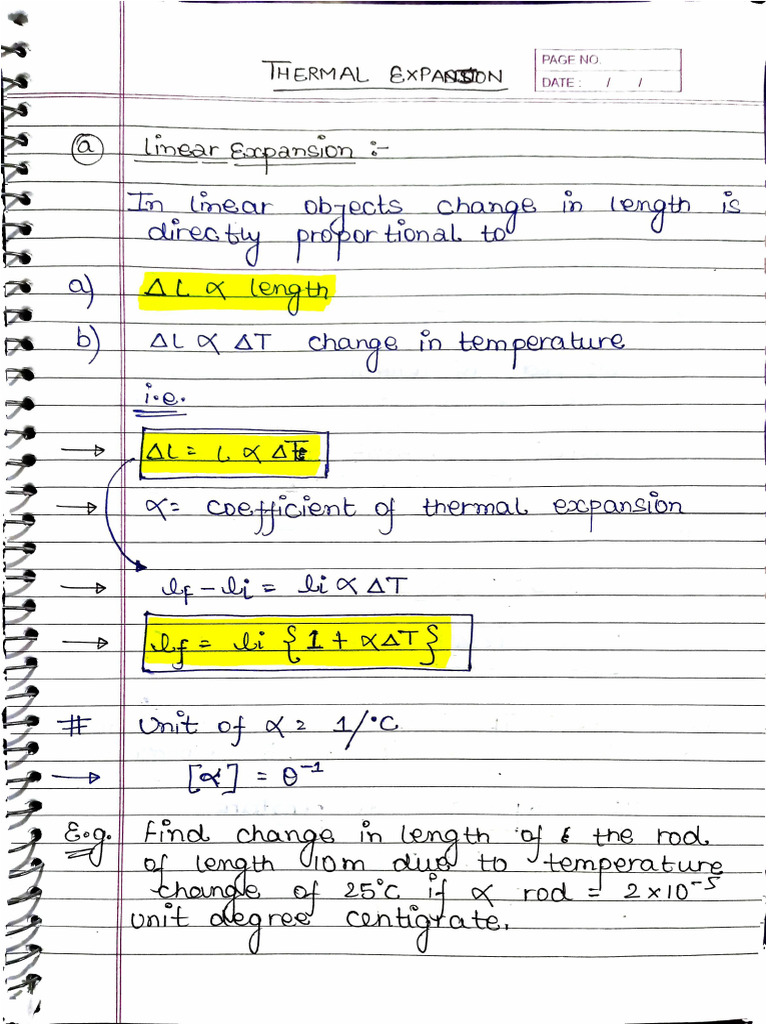 THERMAL EXPANSION
PAGE NO.
DATE: / /
(a) Linear Expansion :-
In linear objects change in length is
directly proportional to
a) ΔL ∝ length
b) ΔL ∝ ΔT change in temperature
i.e.
→ ΔL = L ∝ ΔT
→ ∝ = coefficient of thermal expansion
→ lf - li = li ∝ ΔT
→ lf = li {1 + ∝ΔT}
# Unit of ∝ = 1/°C
→ [∝] = θ⁻¹
E.g. Find change in length of the rod
of length 10m due to temperature
change of 25°C if ∝ rod = 2×10⁻⁵
unit degree centigrate.